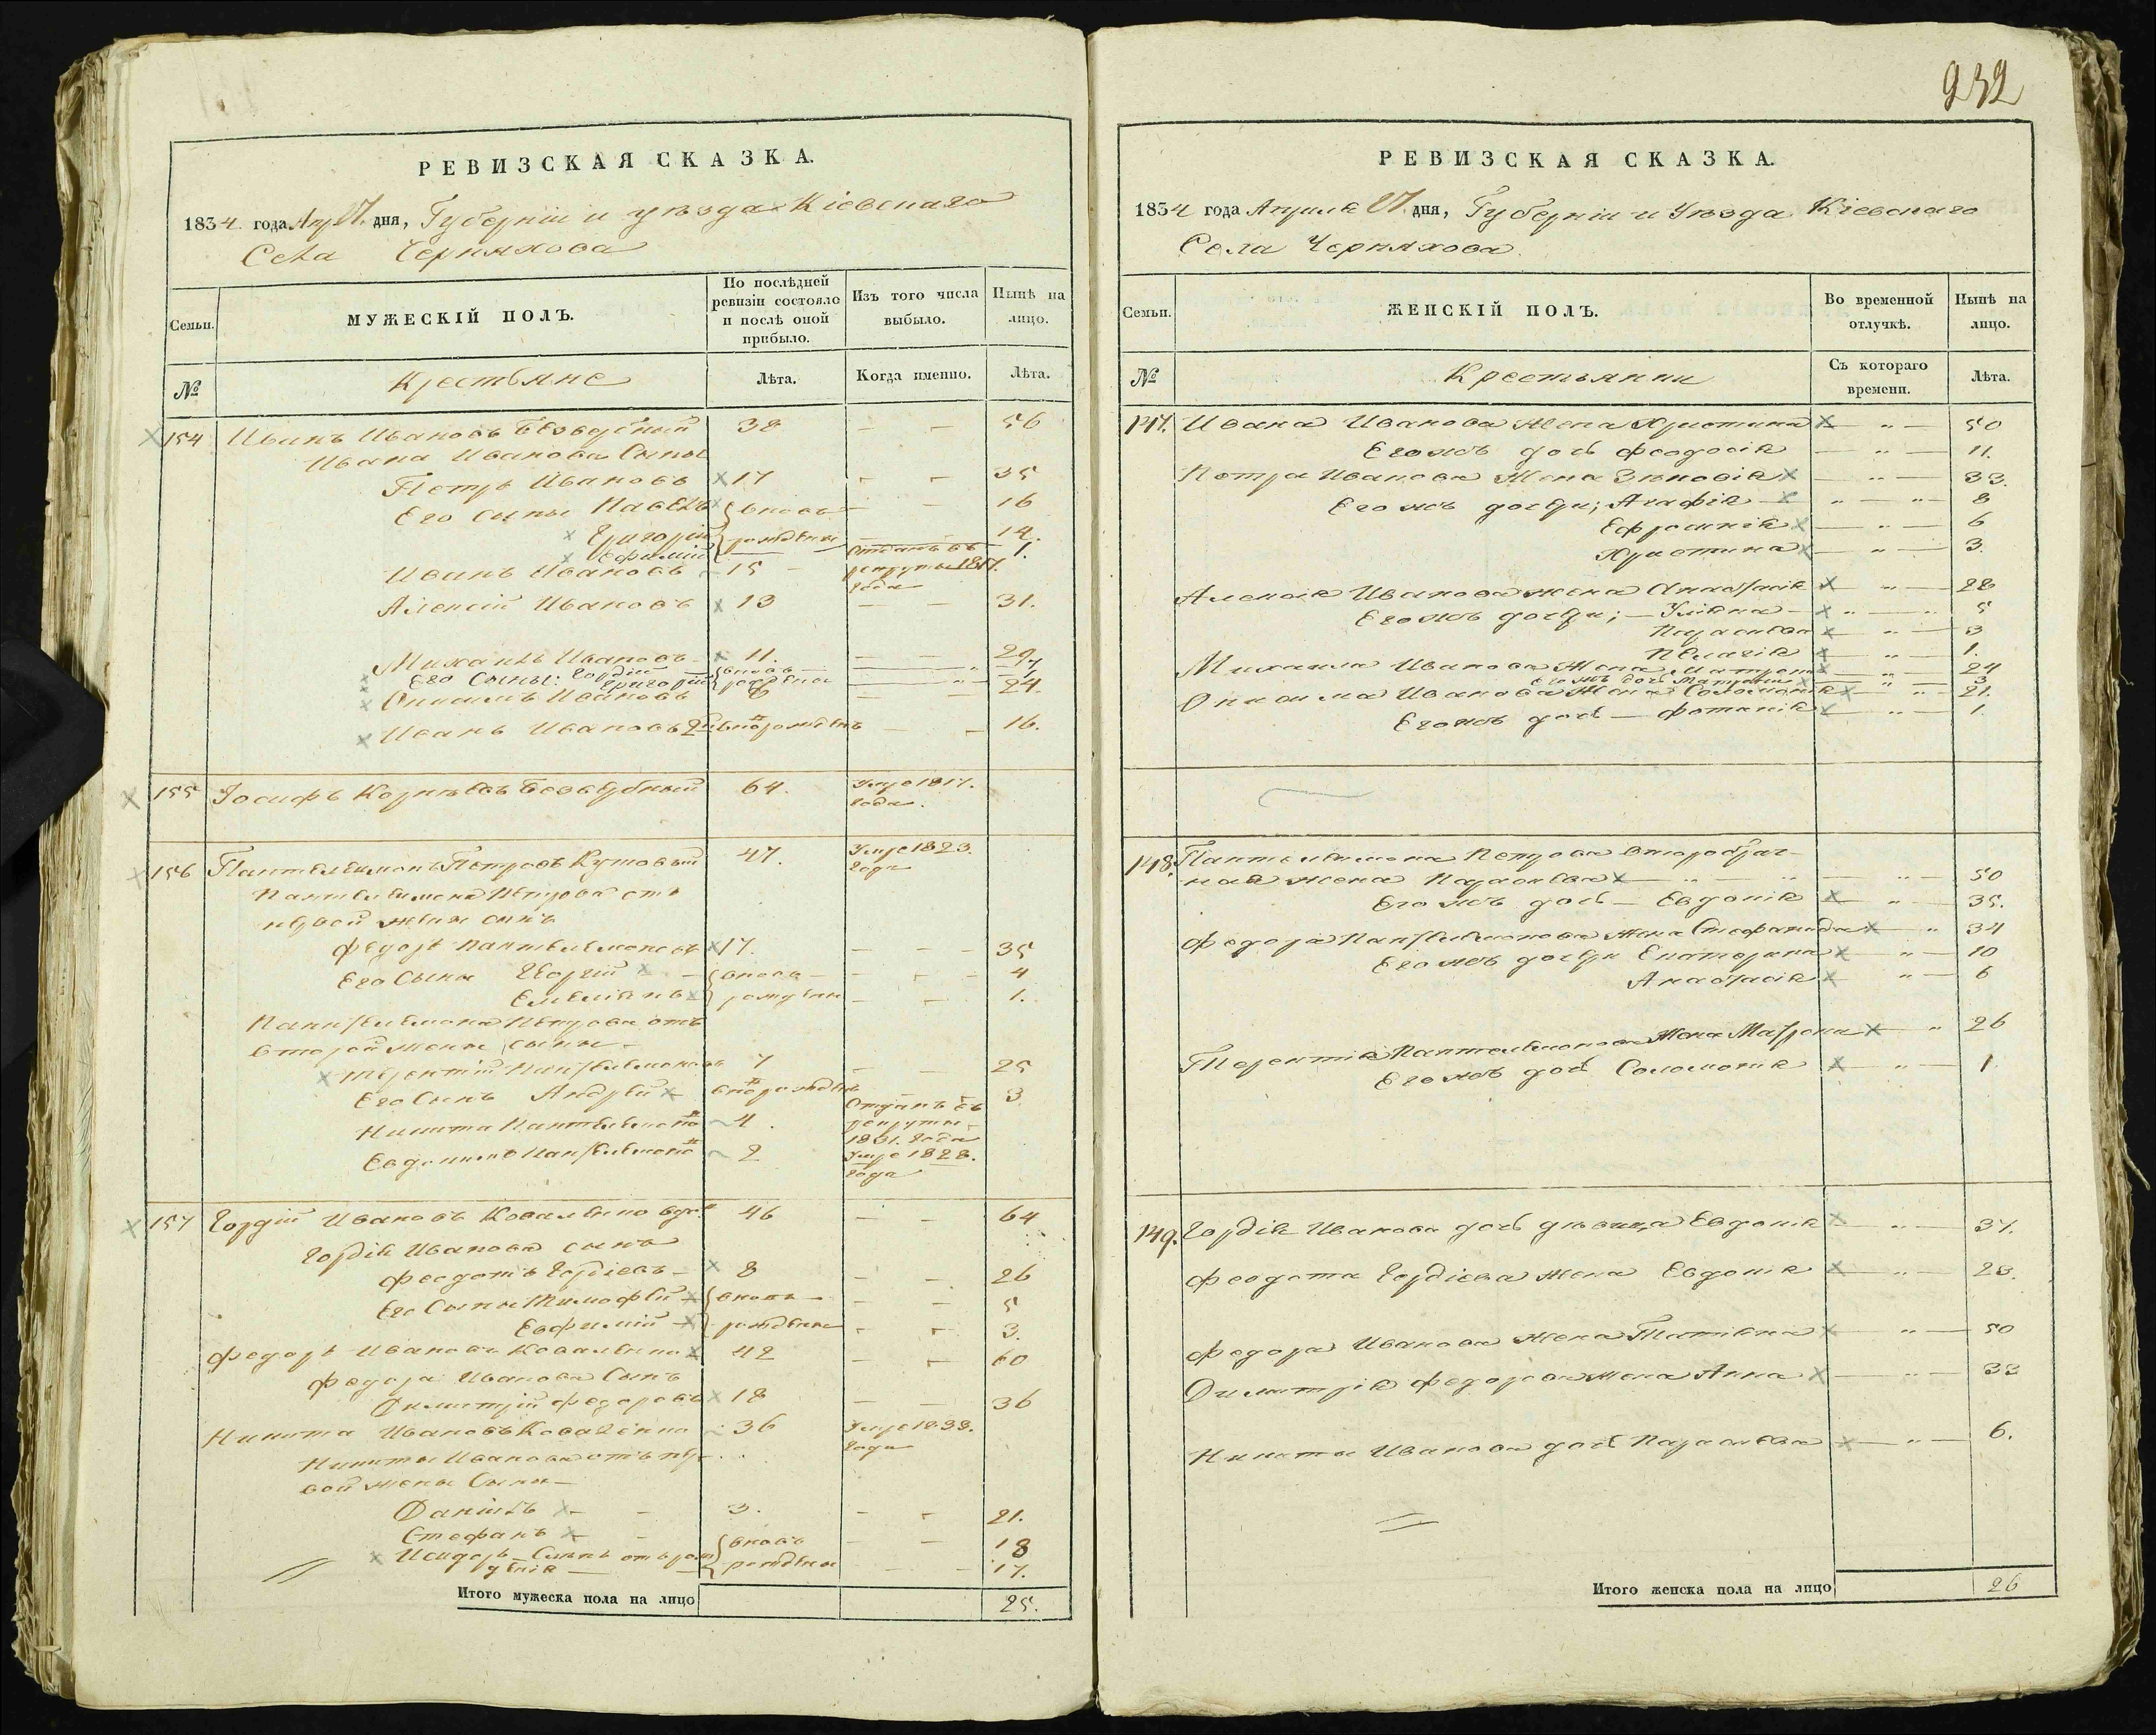 РЕВИЗСКАЯ СКАЗКА.
1834 года Апр 27 дня, Губерніи и уѣзда Кіевскаго
Села Черняхова
Семьи.
МУЖЕСКІЙ ПОЛЪ.
По послѣдней ревизіи состояло и послѣ оной прибыло.
Изъ того числа выбыло.
Нынѣ на лицо.
№
Крестьяне
Лѣта.
Когда именно.
Лѣта.
154 Иванъ Ивановъ Беззубный 38 — — 56
Ивана Иванова Сыны
Петръ Ивановъ 17 - - 35
Его сыны Павелъ вновь — 16
Григорій рождены — 14.
Ефимій — 1.
Иванъ Ивановъ — 15 — Отданъ въ рекруты 1817. года
Алексій Ивановъ 13 — — 31.
Михаилъ Ивановъ 11. — — 29
Его Сыны: Гордій вновь — 7
Григорій рождены — 1
Онисимъ Ивановъ 6 — 24.
Иванъ Ивановъ 2й вноврожденъ — — 16.
155 Іосифъ Корнѣевъ Беззубный 64. Умре 1817. года.
156 Пантелеимонъ Петровъ Кутовый 47. Умре 1823. года
Пантелеимона Петрова отъ
первой жены сынъ
Федоръ Пантелеимоновъ 17. — — 35
Его Сыны Георгій — вновь — - - 4
Емеліянъ рождены — - 1.
Пантелеимона Петрова отъ
второй жены сыны
Терентій Пантелеимоновъ 7 — — 25
Его Сынъ Андрей вноврожденъ 3
Никита Пантелеимоно 4. Отданъ въ рекруты 1831. года
Евдокимъ Пантелеимоно 2 Умре 1828. года
157 Гордій Ивановъ Коваленко вдо 46 — — 64
Гордія Иванова сынъ
Феодотъ Гордіевъ — 8 — — 26
Его Сыны Тимофей вновь — — — 5
Евфимій рождены - - 3.
Федоръ Ивановъ Коваленко 42 — - 60
Федора Иванова Сынъ
Димитрій Федоровъ 18 — — 36
Никита Ивановъ Коваленко 36 Умре 1833. года
Никиты Иванова отъ пер
вой жены Сыны —
Даніилъ — - 3. - - 21.
Стефанъ — - вновь — — 18
Исидоръ — рождены — — 17.
Итого мужеска пола на лицо 25.
932
РЕВИЗСКАЯ СКАЗКА.
1834 года Апрѣля 27. дня, Губерніи и Уѣзда Кіевскаго
Села Черняхова.
Семьи.
ЖЕНСКІЙ ПОЛЪ.
Во временной отлучкѣ.
Нынѣ на лицо.
№
Крестьянки
Съ котораго времени.
Лѣта.
147. Ивана Иванова Жена Христина — „ — 50
Его жъ дочь Феодосія — „ — 11.
Петра Иванова Жена Зѣновія — „ — 33.
Его жъ дочери; Агафія — „ — „ — 8
Ефросинія — „ — 6
Христина — „ — 3.
Алексія Иванова жена Анастасія — „ — 28
Его жъ дочери; — Уліяна — „ — „ 5
Параскева „ — 3
Пелагія — „ — 1.
Михаила Иванова Жена Матрона — „ — 24
Его жъ дочь Матрона — „ — 3
Онисима Иванова Жена Соломонія — „ — 21.
Его жъ дочь — Фотинія — „ — 1.
148. Пантелеимона Петрова второбрач-
ная жена Параскева — „ — „ — „ — 50
Его жъ дочь — Евдокія — „ — 35.
Федора Пантелеимонова жена Стефанида — „ 34
Его жъ дочери Екатерина „ — 10
Анастасія „ — 6
Терентія Пантелеимонова Жена Матрона — „ 26
Его жъ дочь Соломонія — „ — 1
149. Гордія Иванова дочь дѣвица Евдокія — „ — 37.
Феодота Гордіева жена Евдокія — „ — 23.
Федора Иванова Жена Татіяна — „ — 50
Димитрія Федорова жена Анна — „ — 33
Никиты Иванова дочь Параскева — „ — 6.
Итого женска пола на лицо 26